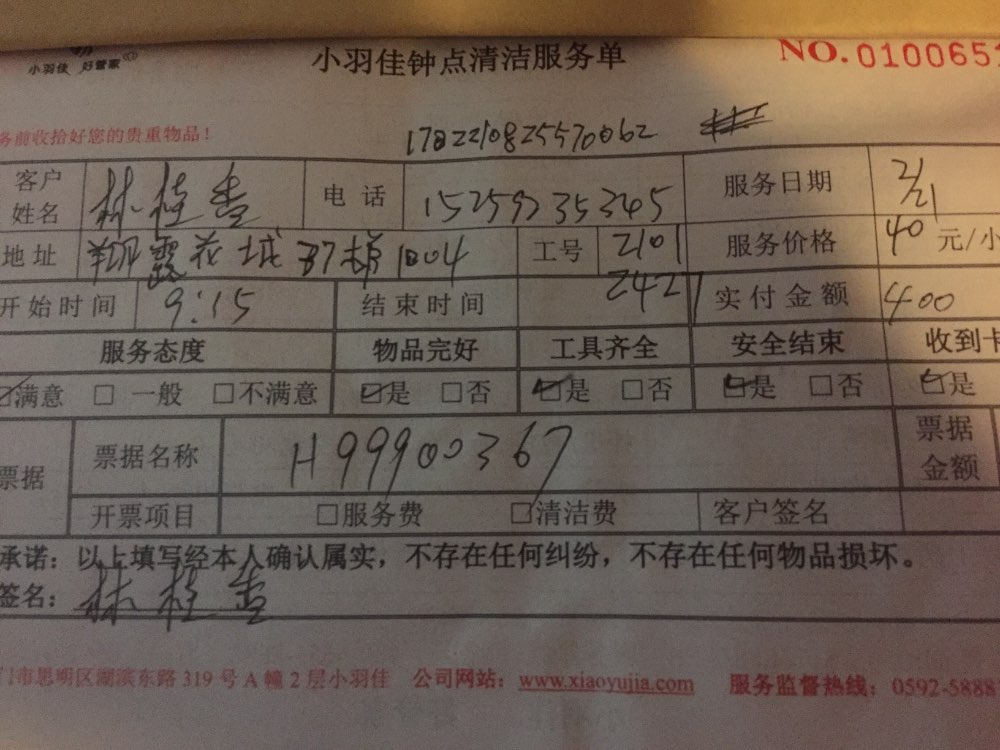 小羽佳 好管家
小羽佳钟点清洁服务单
NO. 0100651
务前收拾好您的贵重物品！
1702210825570062
客户姓名 林桂香 电话 15259235345 服务日期 2/21
地址 翔露花城37栋1004 工号 2101 服务价格 40 元/小
开始时间 9:15 结束时间 2427 实付金额 400
服务态度 物品完好 工具齐全 安全结束 收到卡
☑满意 □ 一般 □不满意 ☑是 □否 ☑是 □否 ☑是 □否 ☑是
票据 票据名称 H99900367 票据金额
开票项目 □服务费 □清洁费 客户签名
承诺：以上填写经本人确认属实，不存在任何纠纷，不存在任何物品损坏。
签名：林桂香
门市思明区湖滨东路 319 号 A 幢 2 层小羽佳 公司网站：www.xiaoyujia.com 服务监督热线：0592-5888